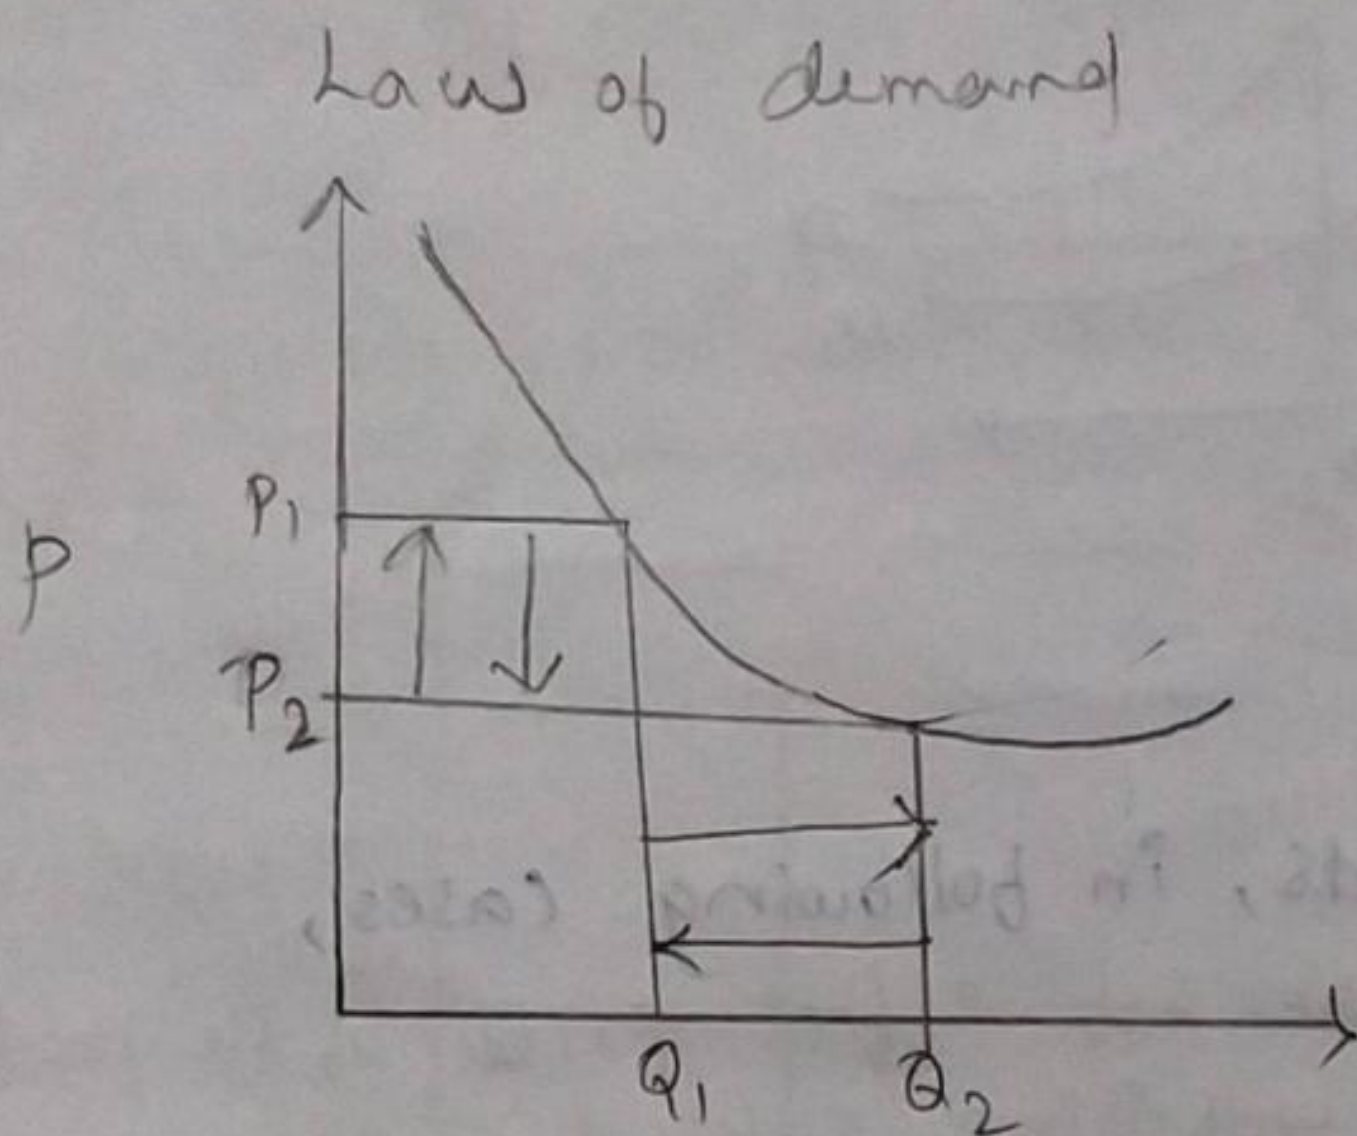 Law of demand
P1
P
P2
Q1 Q2